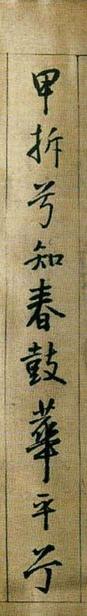 甲拆兮知春鼓華平兮